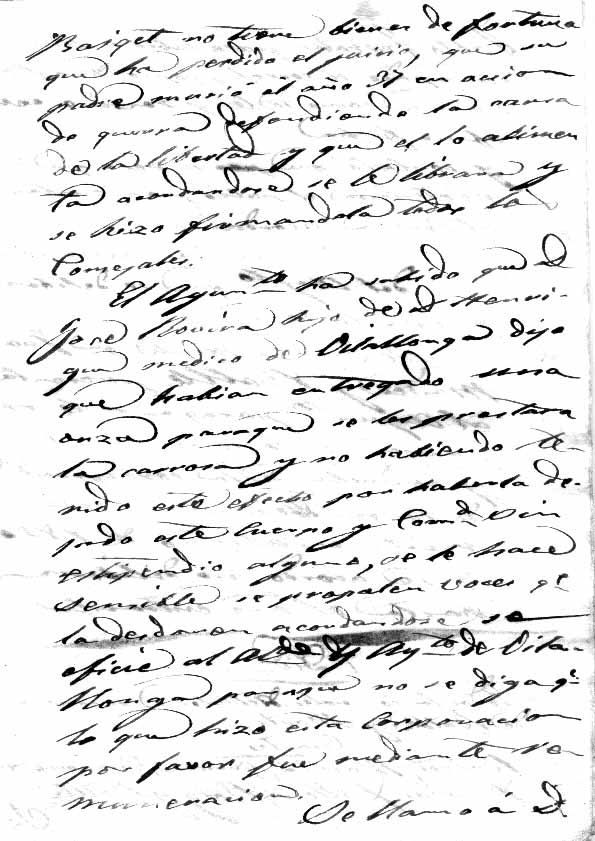 Baiget no tiene bienes de fortuna
que ha perdido el juicio, que su
padre murió el año 37 en accion
de guerra defendiendo la causa
de la libertad y que el lo alimen
ta acordandose se le librara y
se hizo firmandola todos los
Concejales.
El Ayunto ha sabido que el
José Rovira hijo de d. Henri-
que medico de Vilallonga dijo
que habian entregado una
onza paraque se les prestara
la carrosa y no habiendo te-
nido este efecto por haberla de-
jado este Cuerpo y Comd. sin
estipendio alguno, se le hace
sensible se propalen voces qe
la desdoran acordandose se
oficie al Alde y Aymto de Vila-
llonga paraque no se diga qe
lo que hizo esta Corporacion
por favor fue mediante re
muneracion.
Se llamo á D.